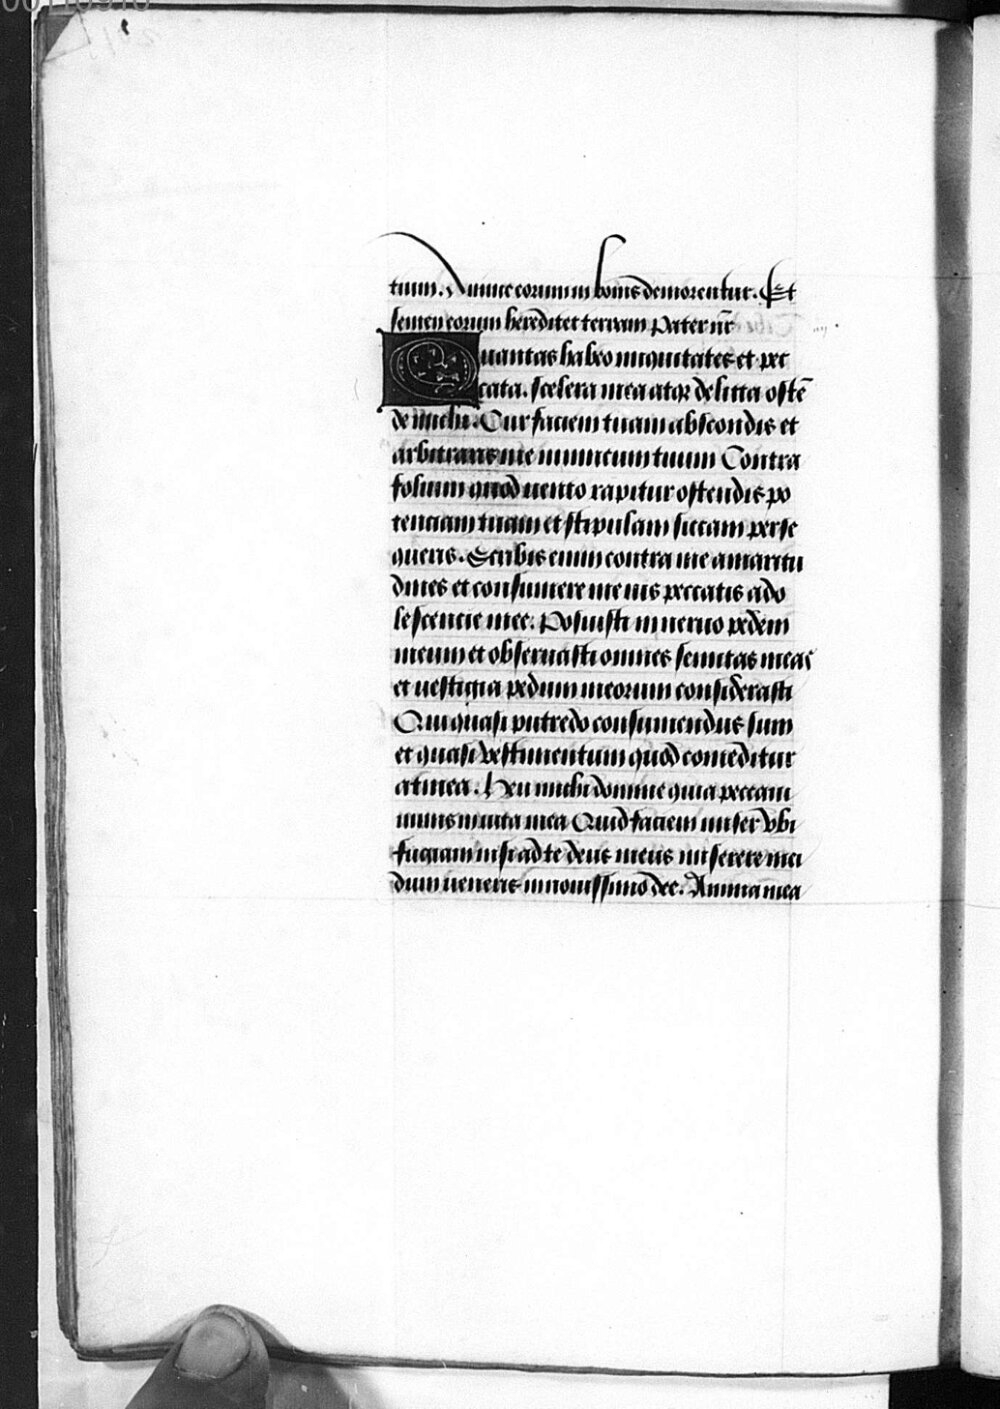 tuum. Anime eorum in bonis demorentur. Et
semen eorum hereditet terram Pater nr̃
Quantas habeo iniquitates et pec
cata. scelera mea atqꝫ delicta ostē
de michi. Cur faciem tuam abscondis et
arbitraris me inimicum tuum Contra
folium quod uento rapitur ostendis po
tenciam tuam et stipulam siccam perse
queris. Scribis enim contra me amaritu
dines et consumere me uis peccatis ado
lescencie mee. Posuisti in neruo pedem
meum et obseruasti omnes semitas meas
et uestigia pedum meorum considerasti
Qui quasi putredo consumendus sum
et quasi vestimentum quod comeditur
a tinea. Heu michi domine quia peccaui
nimis in uita mea Quid faciem miser vbi
fugiam nisi ad te deus meus miserere mei
dum ueneris in nouissimo dee. Anima mea